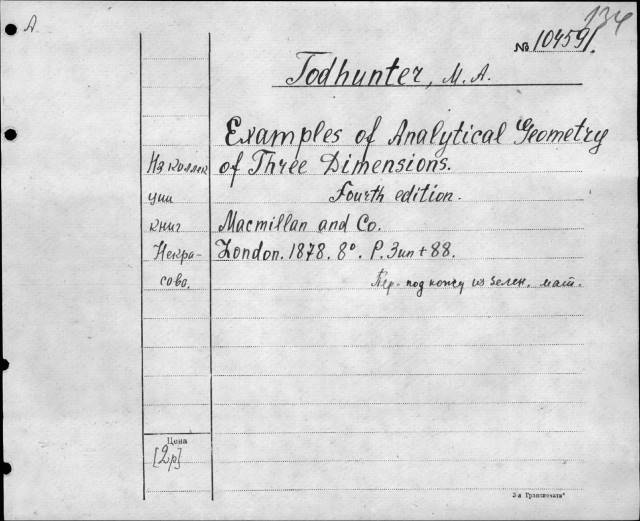 A
134
№ 10459.
Todhunter, M.A.
Examples of Analytical Geometry
of Three Dimensions.
Fourth edition.
Macmillan and Co.
London. 1878. 8°. P. 3нн+88.
Пер. под кожу из зелен. мат.
Из коллек
ции
книг
Некра-
сова.
Цена
[2р]
3-я Гранпечата"